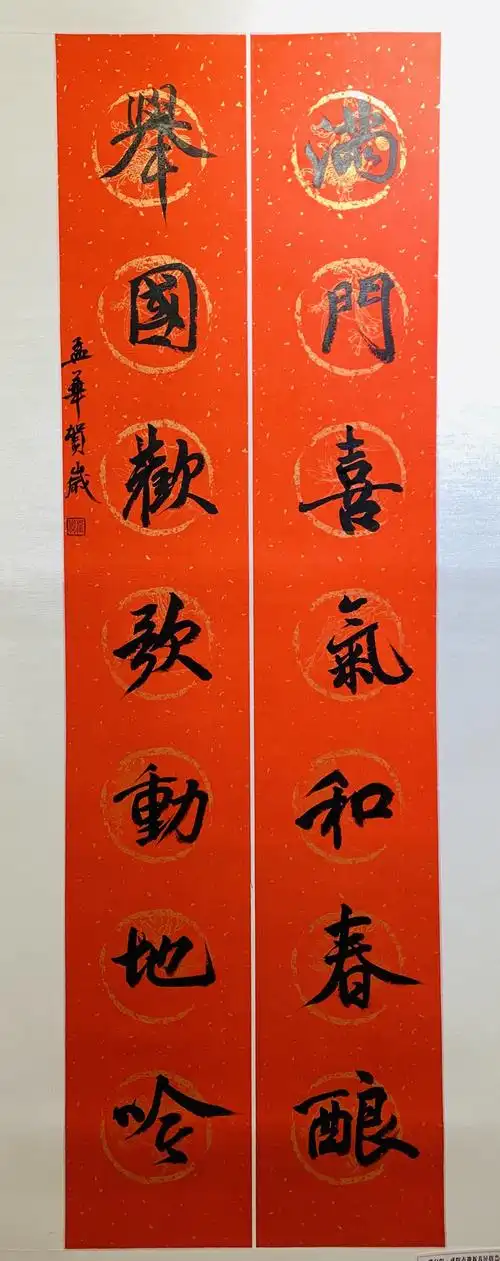 満門喜氣和春酿
舉國歡歌動地吟
孟華賀歲